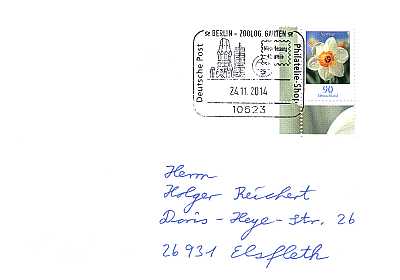 ★ BERLIN - ZOOLOG. GARTEN ★
Deutsche Post
Philatelie-Shop
24.11.2014
10623
90
Deutschland
Herrn
Holger Reichert
Doris-Heye-Str. 26
26931 Elsfleth